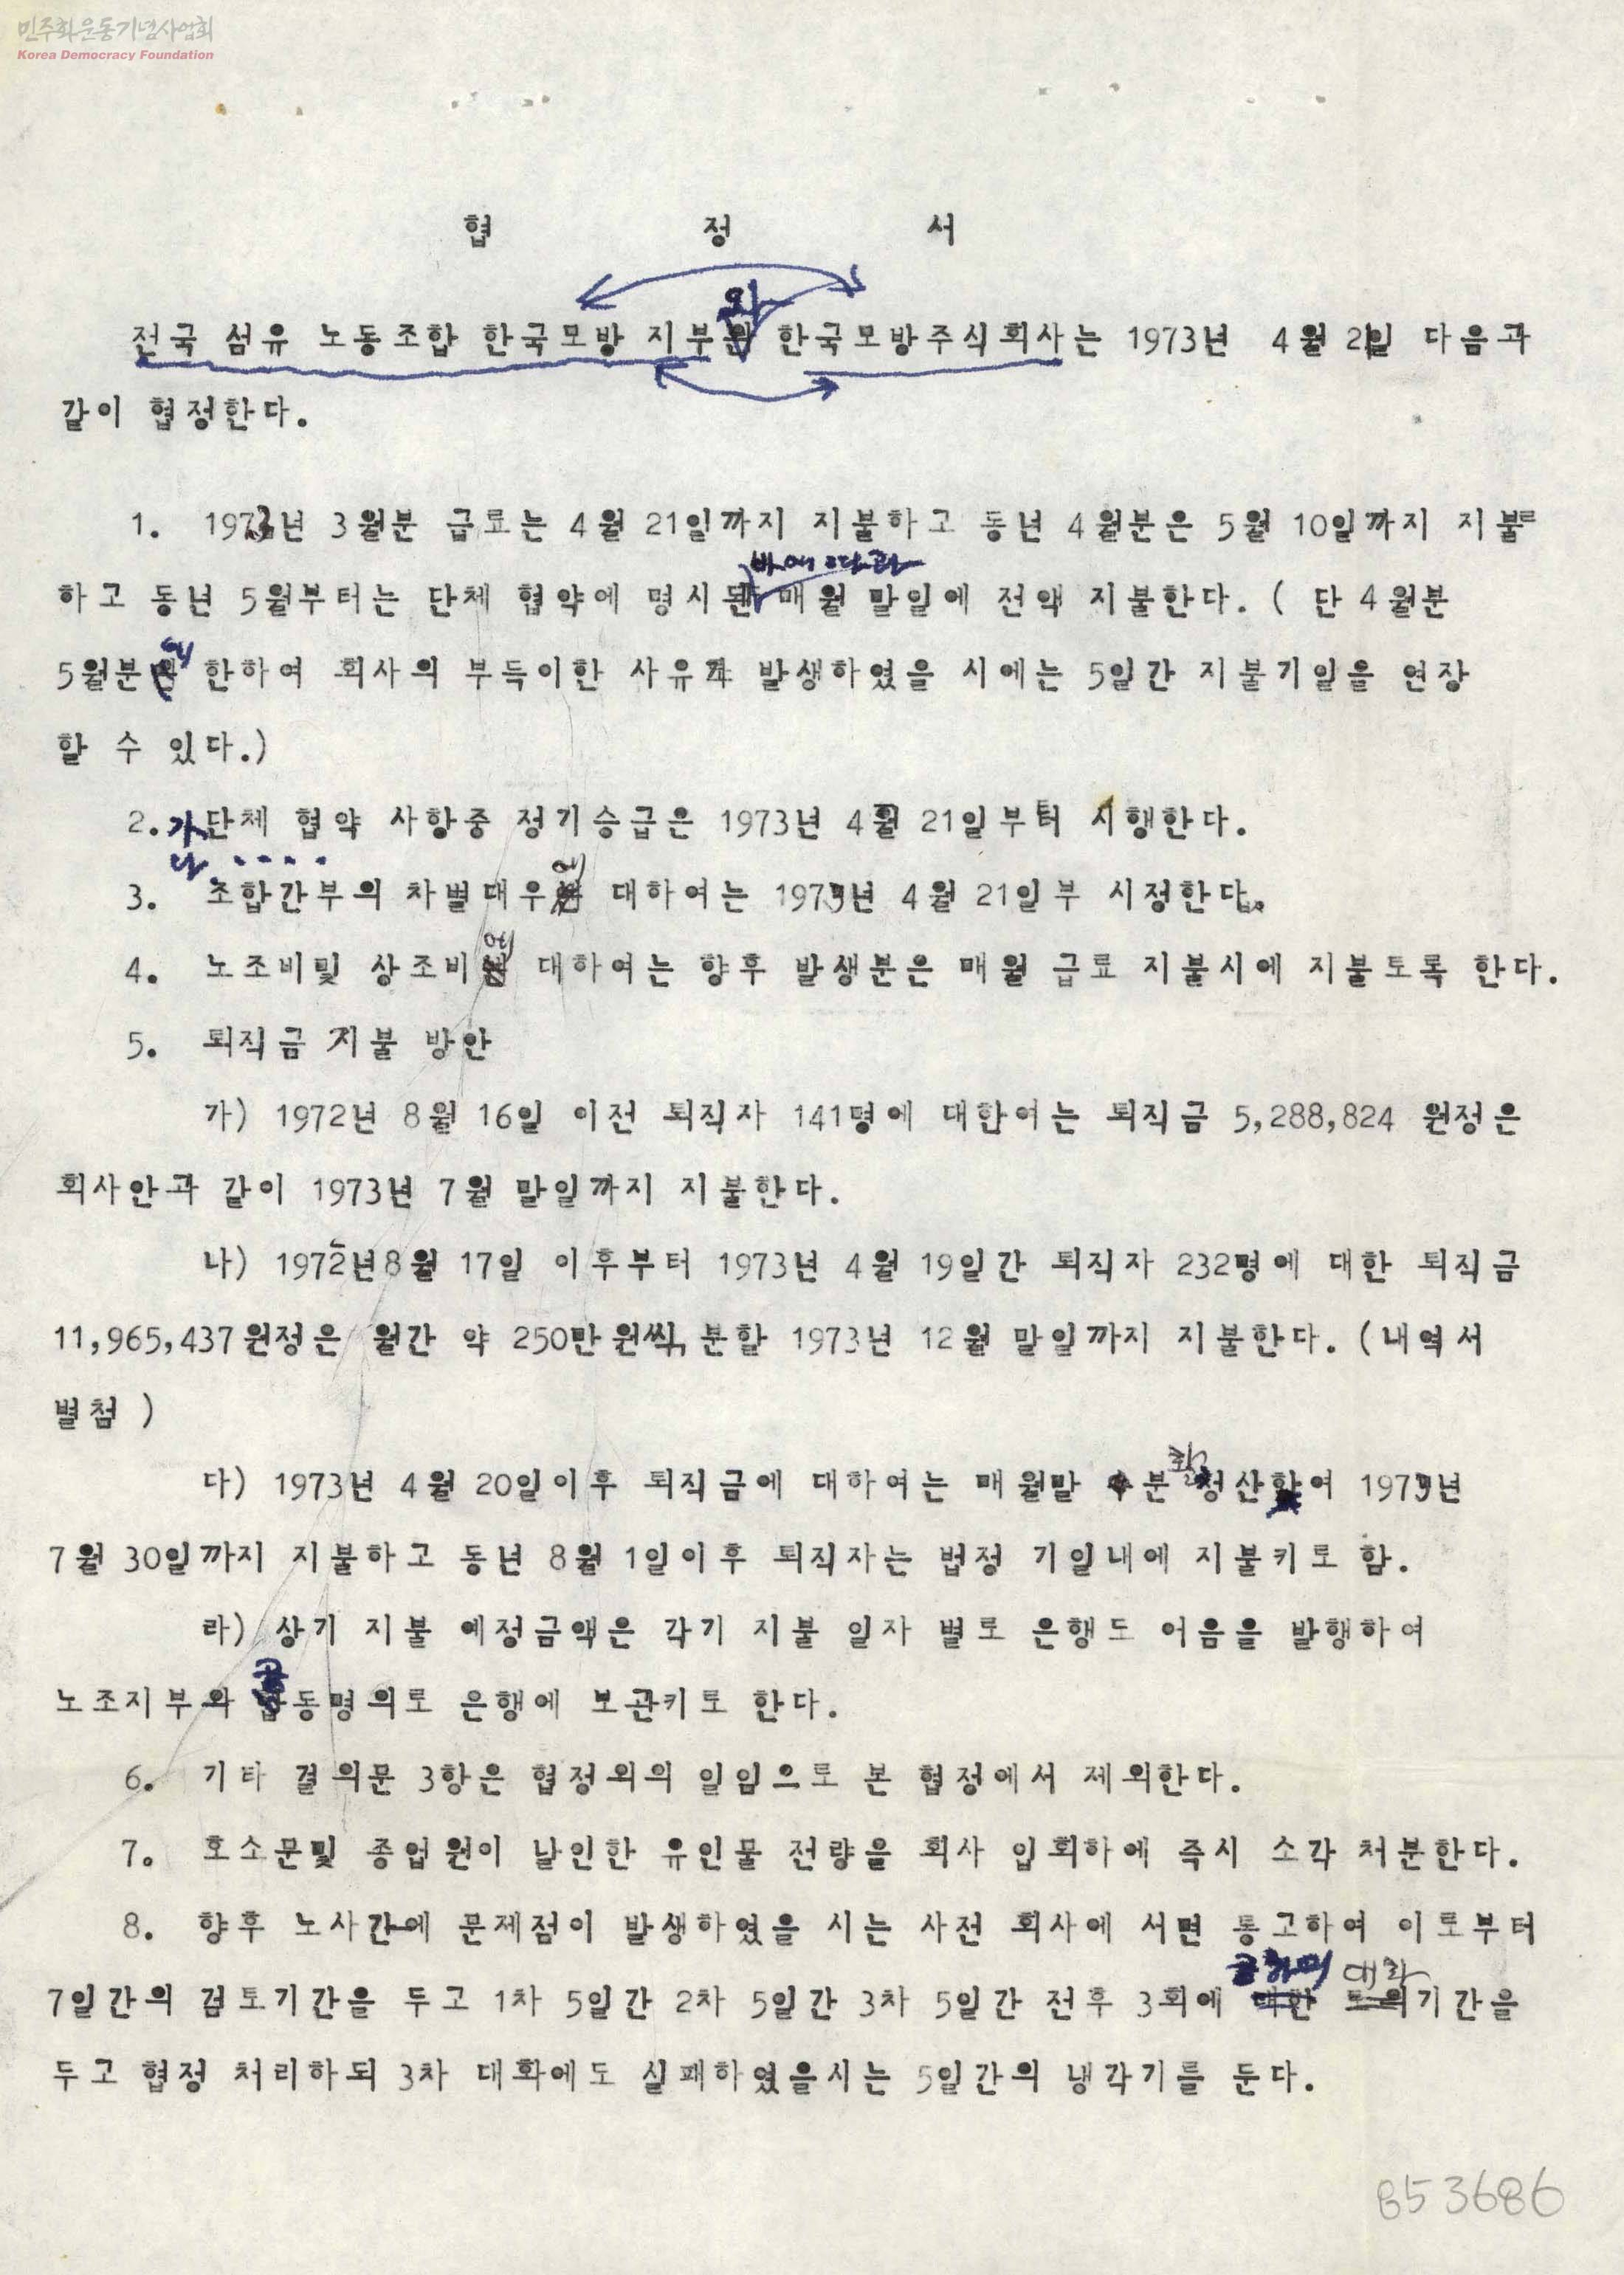 민주화운동기념사업회
Korea Democracy Foundation
협 정 서
와
전국 섬유 노동조합 한국모방 지부 한국모방주식회사는 1973년 4월 21일 다음과
같이 협정한다.
1. 1973년 3월분 급료는 4월 21일까지 지불하고 동년 4월분은 5월 10일까지 지불
바에 따라
하고 동년 5월부터는 단체 협약에 명시된 매월 말일에 전액 지불한다. ( 단 4월분
에
5월분 한하여 회사의 부득이한 사유가 발생하였을 시에는 5일간 지불기일을 연장
할 수 있다.)
2. 가. 단체 협약 사항중 정기승급은 1973년 4월 21일부터 시행한다.
나. ....
에
3. 조합간부의 차별대우 대하여는 1973년 4월 21일부 시정한다.
에
4. 노조비및 상조비 대하여는 향후 발생분은 매월 급료 지불시에 지불토록 한다.
5. 퇴직금 지불 방안
가) 1972년 8월 16일 이전 퇴직자 141명에 대한여는 퇴직금 5,288,824 원정은
회사안과 같이 1973년 7월 말일까지 지불한다.
나) 1972년8월 17일 이후부터 1973년 4월 19일간 퇴직자 232명에 대한 퇴직금
11,965,437원정은 월간 약 250만원씩, 분할 1973년 12월 말일까지 지불한다. (내역서
별첨 )
다) 1973년 4월 20일이후 퇴직금에 대하여는 매월말 분 청산하여 1973년
7월 30일까지 지불하고 동년 8월 1일이후 퇴직자는 법정 기일내에 지불키로 함.
라) 상기 지불 예정금액은 각기 지불 일자 별로 은행도 어음을 발행하여
공
노조지부와 동명의로 은행에 보관키로 한다.
6. 기타 결의문 3항은 협정외의 일임으로 본 협정에서 제외한다.
7. 호소문및 종업원이 날인한 유인물 전량을 회사 입회하에 즉시 소각 처분한다.
8. 향후 노사간에 문제점이 발생하였을 시는 사전 회사에 서면 통고하여 이로부터
대화
7일간의 검토기간을 두고 1차 5일간 2차 5일간 3차 5일간 전후 3회에 대한 토의기간을
두고 협정 처리하되 3차 대화에도 실패하였을시는 5일간의 냉각기를 둔다.
853686